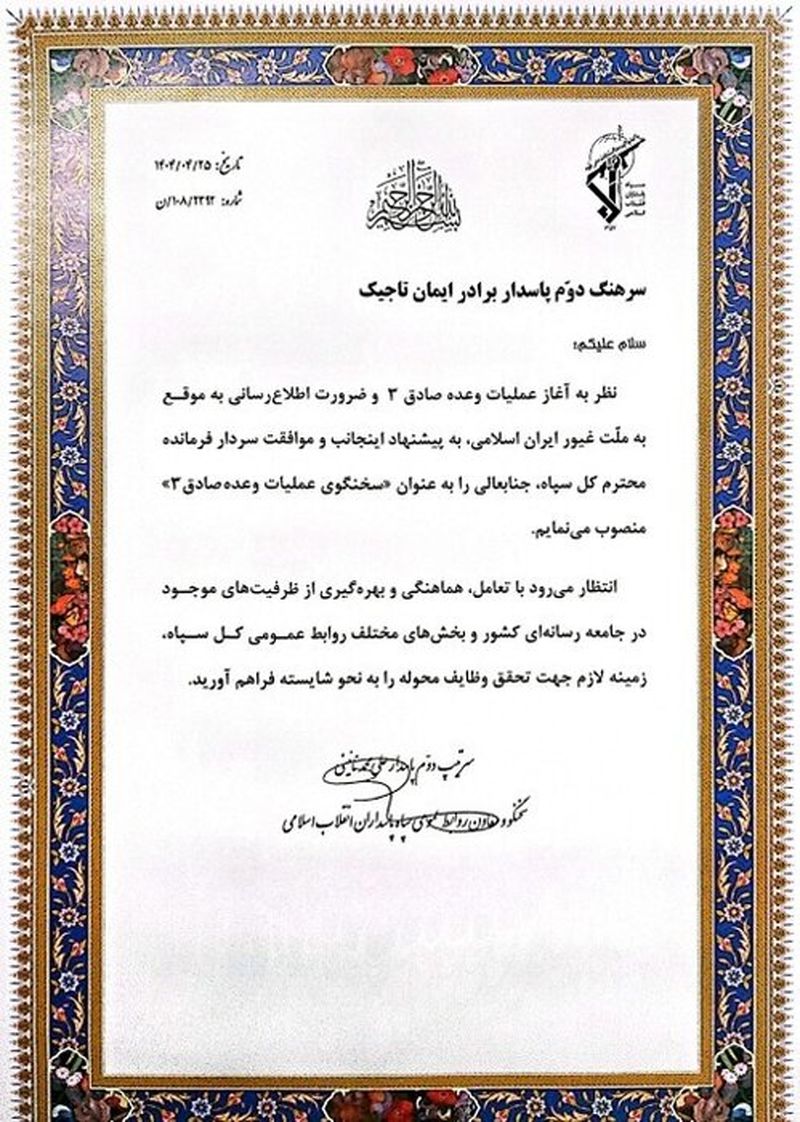 بسم الله الرحمن الرحیم
سپاه
پاسداران
انقلاب
اسلامی
تاریخ: ۱۴۰۴/۰۴/۲۵
شماره: ۱۰۸/۲۳۹۲/ن
سرهنگ دوّم پاسدار برادر ایمان تاجیک
سلام علیکم؛
نظر به آغاز عملیات وعده صادق ۳ و ضرورت اطلاع‌رسانی به موقع
به ملّت غیور ایران اسلامی، به پیشنهاد اینجانب و موافقت سردار فرمانده
محترم کل سپاه، جنابعالی را به عنوان «سخنگوی عملیات وعده صادق ۳»
منصوب می‌نمایم.
انتظار می‌رود با تعامل، هماهنگی و بهره‌گیری از ظرفیت‌های موجود
در جامعه رسانه‌ای کشور و بخش‌های مختلف روابط عمومی کل سپاه،
زمینه لازم جهت تحقق وظایف محوله را به نحو شایسته فراهم آورید.
سرتیپ دوّم پاسدار علی محمد نائینی
سخنگو و معاون روابط عمومی سپاه پاسداران انقلاب اسلامی